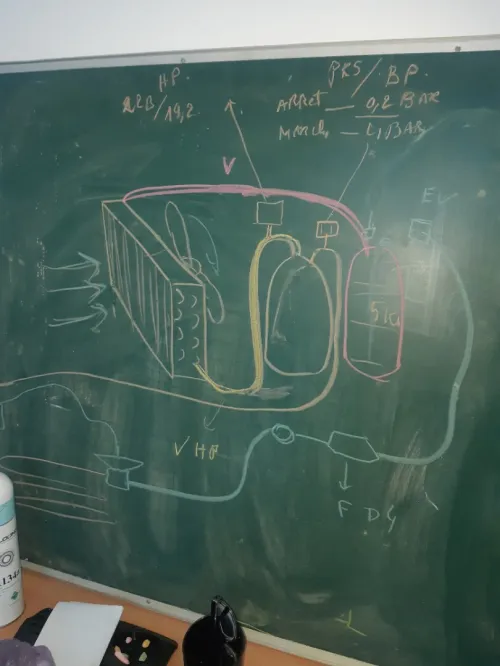 HP.
22B/19,2.
PKS/BP.
ARRET — 0,2 BAR
March — 1,1 BAR
V
EV
5 KG
V HP
F DG
134a